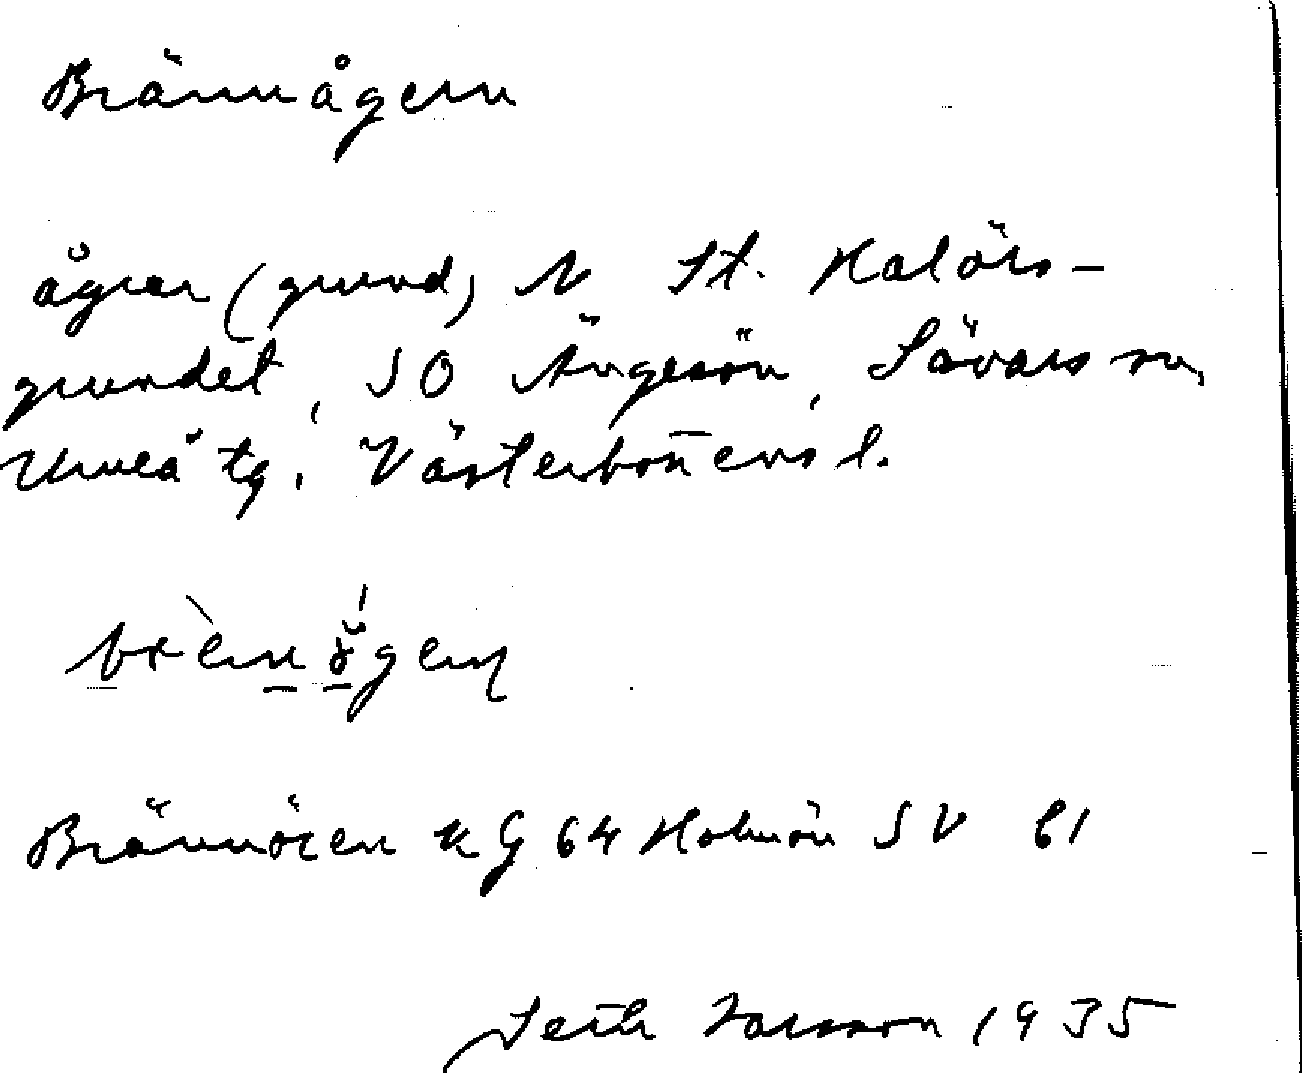 Brännågern
ågrar (grund) N St. Kalörs-
grundet, SO Ängesön, Sävars sn,
Umeå tg. Västerboten̄s l.
Brännören KG 64 Holmön SV 61
Seth Larsson 1935